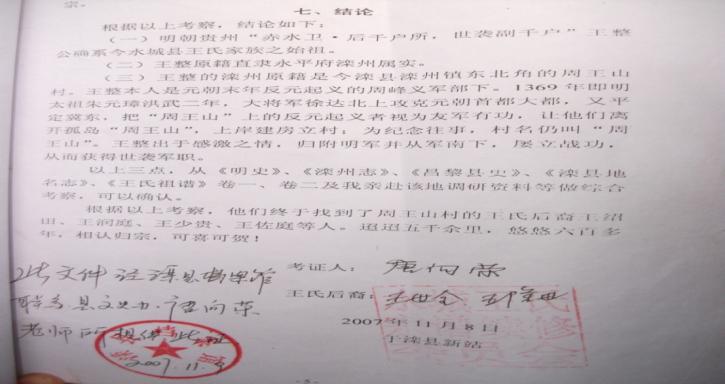 宗。
七、结论
根据以上考察，结论如下：
（一）明朝贵州“赤水卫·后千户所，世袭副千户”王整
公确系今水城县王氏家族之始祖。
（二）王整原籍直隶永平府滦州属实。
（三）王整的滦州原籍是今滦县滦州镇东北角的周王山
村。王整本人是元朝末年反元起义的周峰义军部下。1369年即明
太祖朱元璋洪武二年，大将军徐达北上攻克元朝首都大都，又平
定冀东，把“周王山”上的反元起义者视为友军有功，让他们离
开孤岛“周王山”，上岸建房立村；为纪念往事，村名仍叫“周
王山”。王整出于感激之情，归附明军并从军南下，屡立战功，
从而获得世袭军职。
以上三点，从《明史》、《滦州志》、《昌黎县史》、《滦县地
名志》、《王氏祖谱》卷一、卷二及我亲赴该地调研资料等做综合
考察，可以确认。
根据以上考察，他们终于找到了周王山村的王氏后裔王绍
田、王润庭、王少贵、王佐庭等人。迢迢五千余里，悠悠六百多
年，相认归宗，可喜可贺！
考证人：唐向荣
王氏后裔：王世全
2007年11月8日
于滦县新站
此文件经滦县档案馆
联系县文史办唐向荣
老师所提供 此证
2007.11.9
-5-